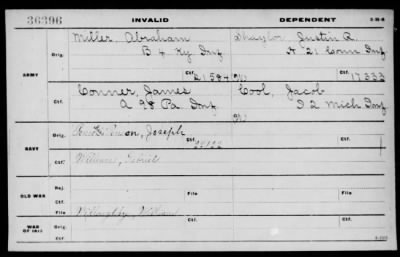 36396 INVALID DEPENDENT 3-35-6
Miller, Abraham Shaylor, Justin R.
Orig. B 4 Ky Inf H 21 Conn Inf
ARMY Ctf. 21584 W. Ctf. 17333
Conner, James Cool, Jacob
Orig. A 98 Pa Inf I 2 Mich Inf
Ctf. W.
Orig. on, Joseph Ctf.
NAVY
Ctf. Gabriel
OLD WAR Rej. File File
Ctf.
Willoughby, William
WAR OF 1812 Orig. Ctf. Ctf.
Ctf.